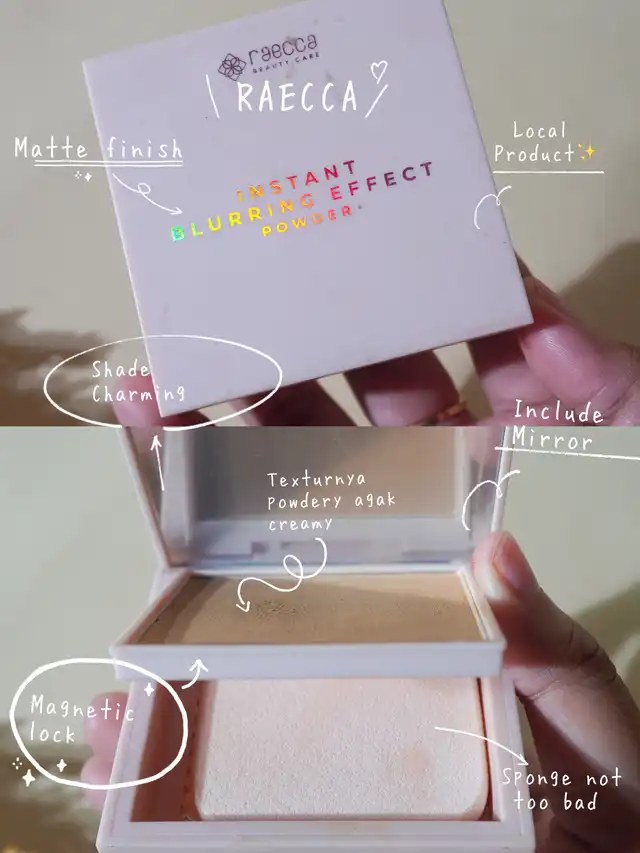 raecca
BEAUTY CARE
RAECCA
Matte finish
Local
Product
INSTANT
BLURRING EFFECT
POWDER
Shade
Charming
Include
Mirror
Texturnya
powdery agak
creamy
Magnetic
lock
Sponge not
too bad